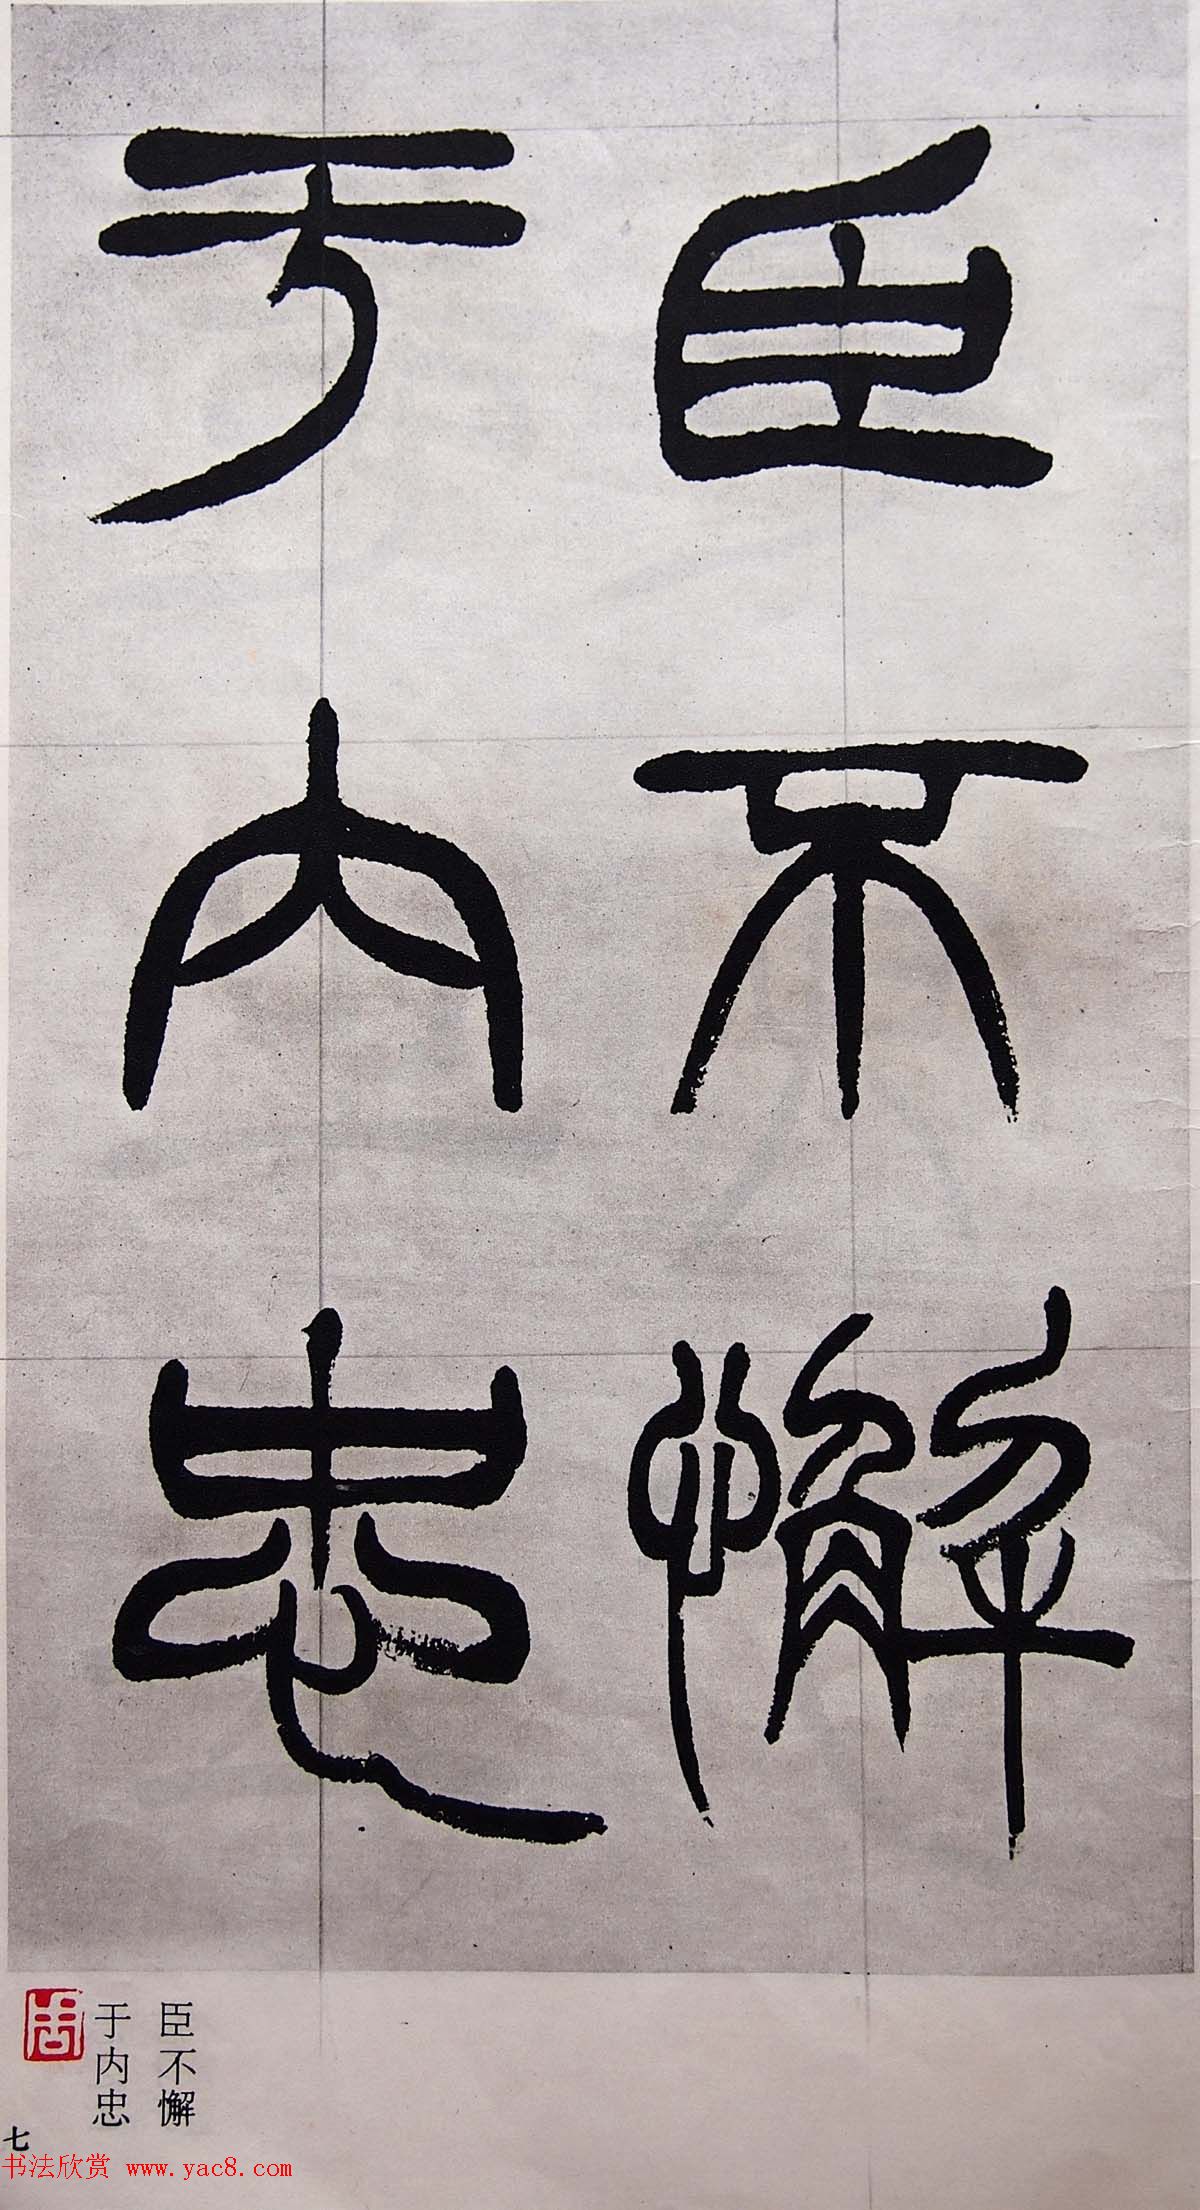 臣不懈
于內忠
臣不懈
于内忠
七
书法欣赏 www.yac8.com